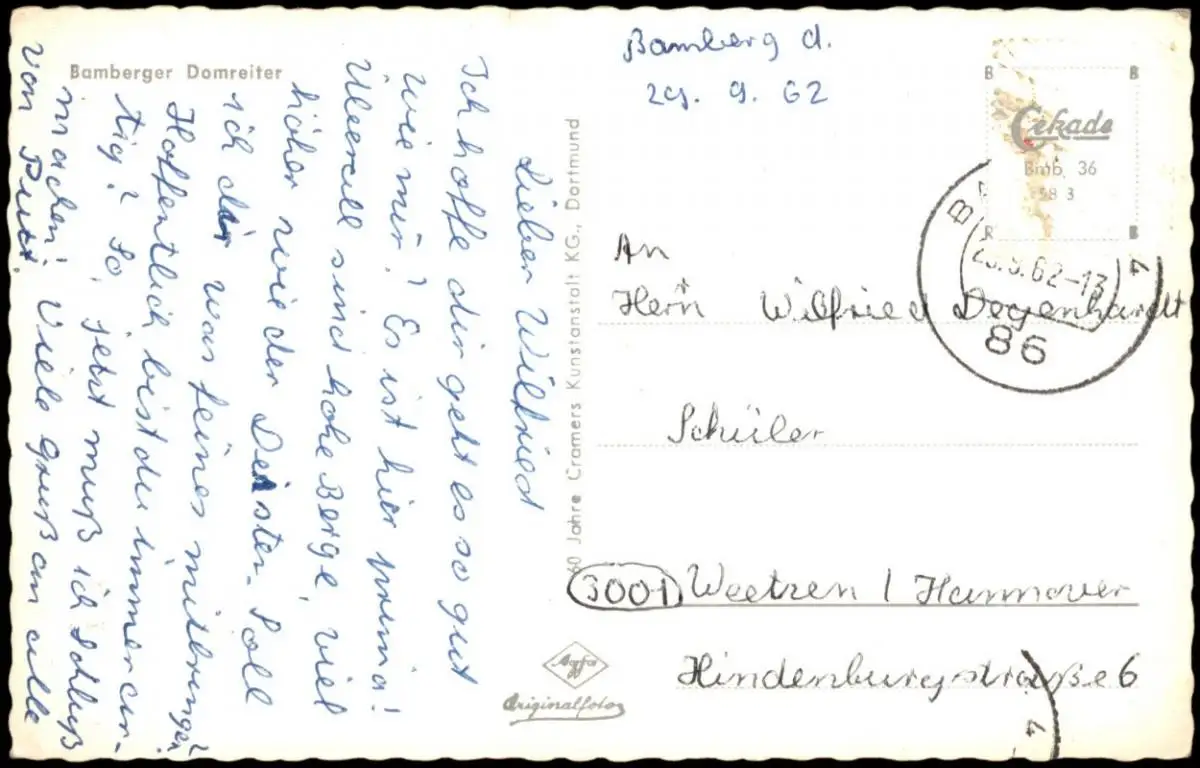 Bamberger Domreiter
Bamberg d.
29. 9. 62
Lieber Wilfried
Ich hoffe dir geht es so gut
wie mir? Es ist hier prima!
Überall sind hohe Berge, viel
höher wie der Deister. Soll
ich dir was feines mitbringen?
Hoffentlich bist du immer ar-
tig? So, jetzt muß ich Schluß
machen! Viele Grüße an alle
von
60 Jahre Cramers Kunstanstalt KG., Dortmund
Cekade
Bmb. 36
58 3
62-13
86
An
Herrn Wilfried Degenhardt
Schüler
3001 Weetzen / Hannover
Hindenburgstraße 6
Agfa
Originalfoto